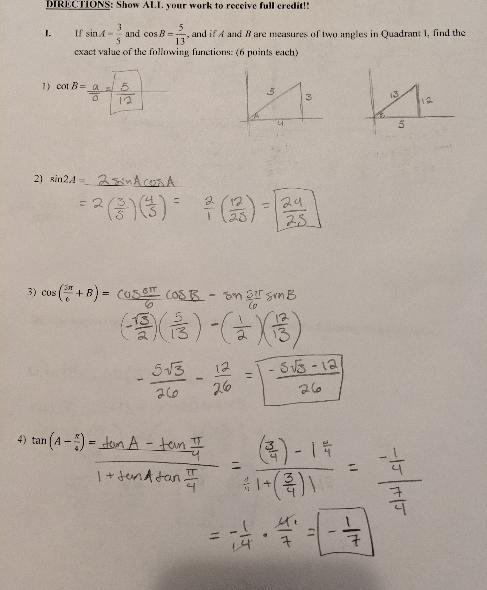 DIRECTIONS: Show ALL your work to receive full credit!!
1. If sin A = 3/5 and cos B = 5/13, and if A and B are measures of two angles in Quadrant I, find the
exact value of the following functions: (6 points each)
1) cot B = a/o = 5/12
5 3 4
13 12 5
2) sin2A = 2 sinA cosA
= 2(3/5)(4/5) = 2/1 (12/25) = 24/25
3) cos(5π/6 + B) = cos 5π/6 cos B - sin 5π/6 sin B
(-√3/2)(5/13) - (1/2)(12/13)
- 5√3/26 - 12/26 = -5√3-12/26
4) tan(A - π/4) = tan A - tan π/4 / 1 + tan A tan π/4 = (3/4) - 1 4/4 / 4/4 1 + (3/4)1 = -1/4 / 7/4
= -1/4 · 4/7 = -1/7